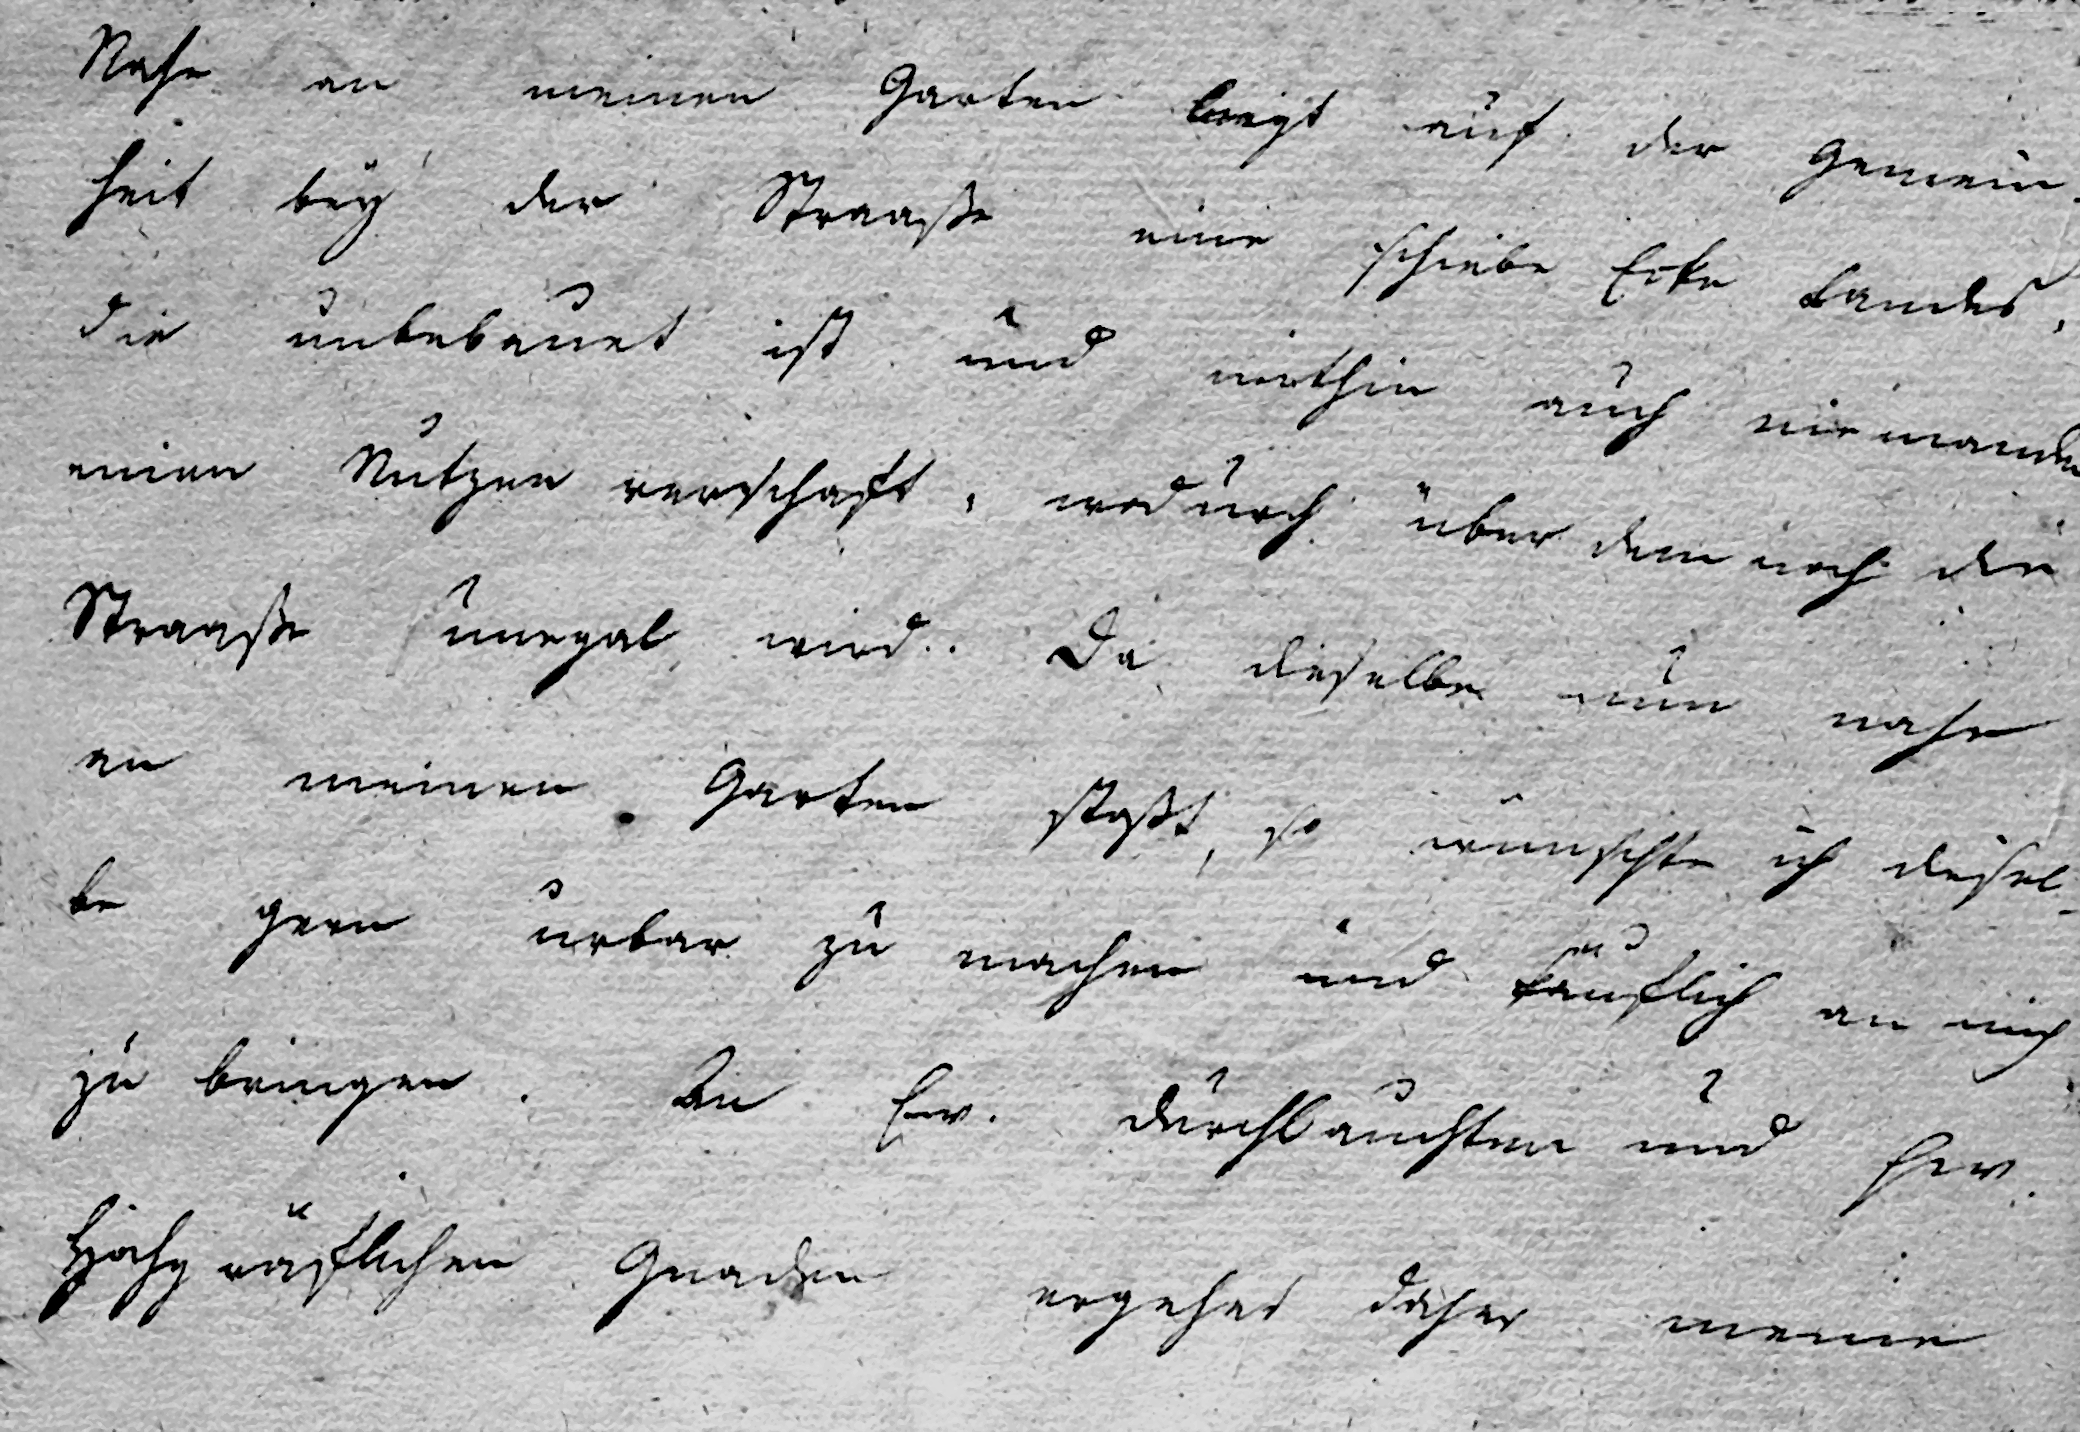 Nahe an meinen Garten liegt auf der Gemein-
heit bey der Straaße eine schiebe Ecke Landes,
die unbebauet ist und mithin auch niemanden
einen Nutzen verschaft, wodurch über dem noch die
Straaße unegal wird. Da dieselbe nun nahe
an meinen Garten stoßt, so wünschte ich diesel-
be gern urbar zu machen und käuflich an mich
zu bringen. An Ew. Durchlauchten und Ew.
Hochgräflichen Gnaden ergehet daher meine